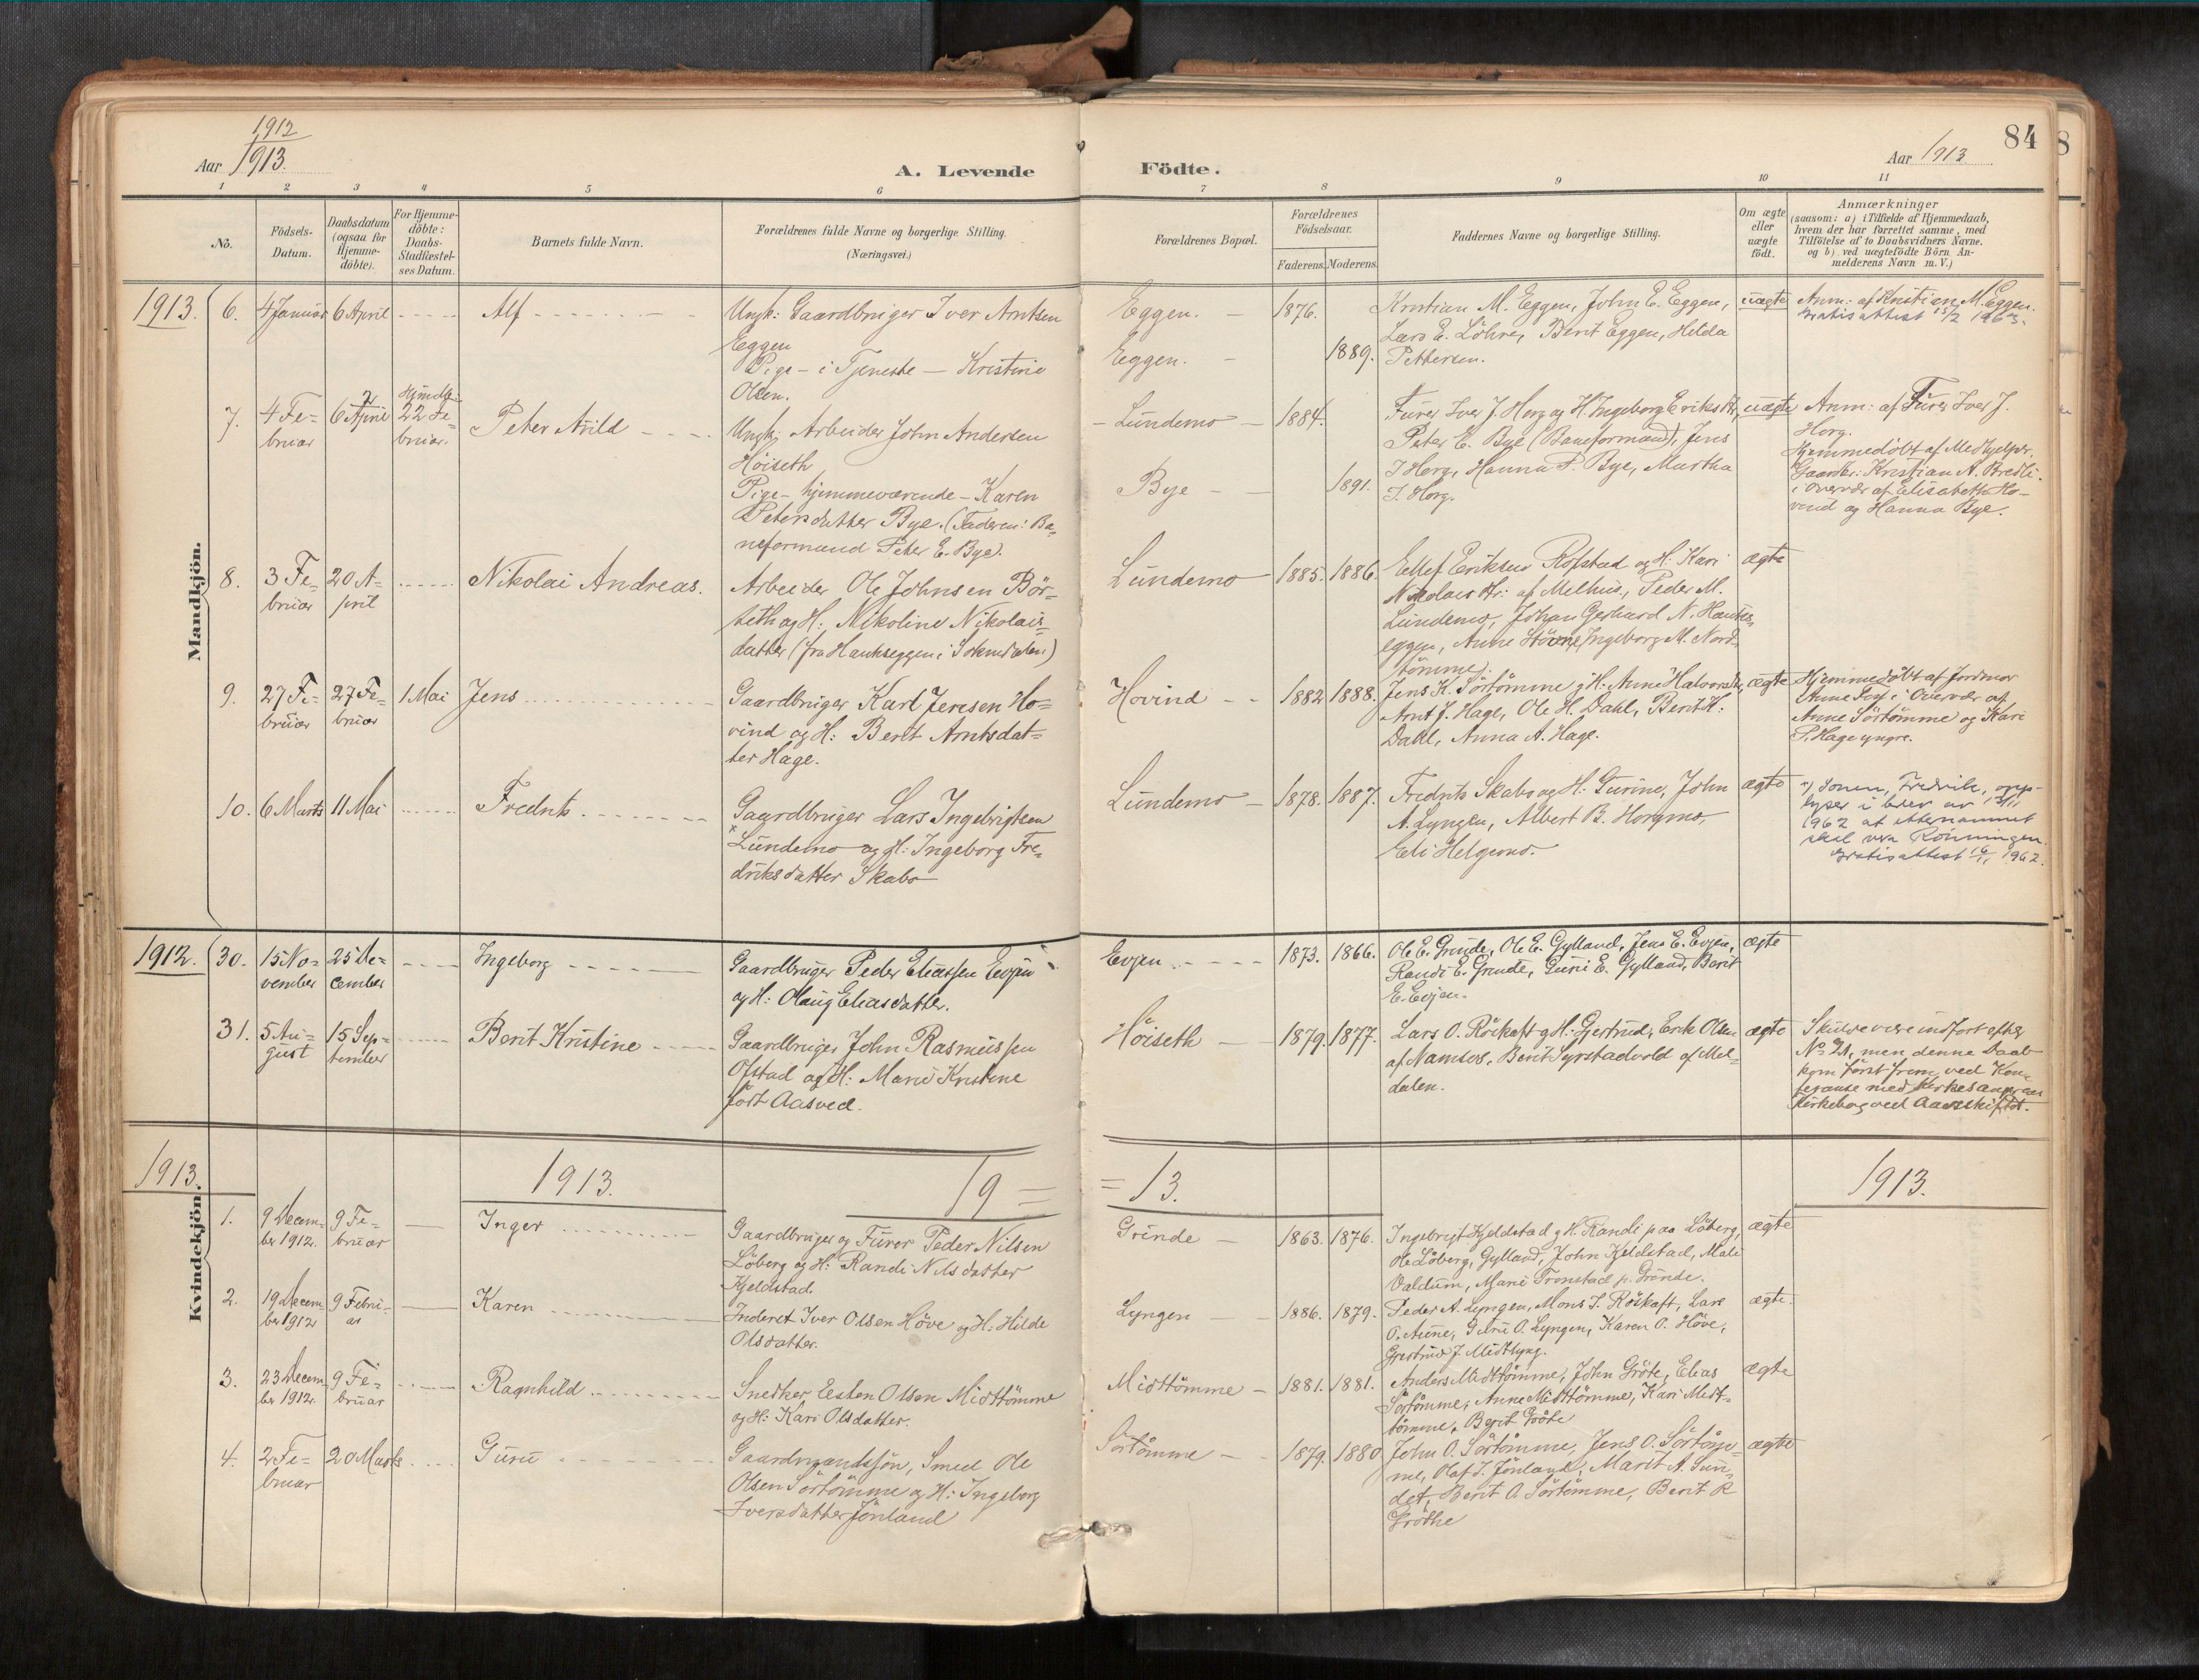 1912
Aar 1913.
A. Levende
Födte.
Aar 1913
84
1 2 3 4 5 6 7 8 9 10 11
No.
Födsels-
Datum.
Daabsdatum
(ogsaa for
Hjemme-
döbte).
For Hjemme-
döbte:
Daabs-
Stadfæstel-
ses Datum.
Barnets fulde Navn.
Forældrenes fulde Navne og borgerlige Stilling.
(Næringsvei.)
Forældrenes Bopæl.
Forældrenes
Födselsaar.
Faderens. Moderens.
Faddernes Navne og borgerlige Stilling.
Om ægte
eller
uægte
födt.
Anmærkninger
(saasom: a) i Tilfælde af Hjemmedaab,
hvem der har forrettet samme, med
Tilföielse af to Daabsvidners Navne.
og b) ved uægtefödte Börn An-
melderens Navn m. V.)
Mandkjön.
1913.
6.
4 Januar
6 April
Alf
Ungk: Gaardbruger Iver Arntsen
Eggen
Pige - i Tjeneste - Kristine
Olsen.
Eggen.
Eggen.
1876.
1889.
Kristian M. Eggen, John E. Eggen,
Lars E. Löhre, Berit Eggen, Hilda
Pettersen.
uægte
Anm: af Kristian M. Eggen.
Gratisattest 15/2 1963.
7.
4 Fe-
bruar
6 April
Hjmdb:
22 Fe-
bruar.
Peter Arild
Ungk: Arbeider John Andersen
Höiseth
Pige - hjemmeværende - Karen
Petersdatter Bye. (Faderen: Ba-
neformand Peter E. Bye).
Lundemo
Bye
1884.
1891.
Furer Iver J. Horg og H. Ingeborg Eriksdtr,
Peter E. Bye (Baneformand), Jens
J Horg, Hanna P. Bye, Martha
I. Horg.
uægte
Anm: af Furer Iver J.
Horg.
Hjemmedöbt af Medhjelper.
Gaardbr: Kristian A. Bredli
i Overvær af Elisabeth Ho-
vind og Hanna Bye.
8.
3 Fe-
bruar
20 A-
pril
Nikolai Andreas.
Arbeider Ole Johnsen Bör-
seth og H: Nikoline Nikolais-
datter (fra Haukseggen i Soknedalen)
Lundemo
1885.
1886.
Ellef Eriksen Rofstad og H. Kari
Nikolais dtr: af Melhus, Peder M.
Lundemo, Johan Gerhard N. Hauks-
eggen, Anne Störe, Ingeborg M. Nord-
tömme).
ægte
9.
27 Fe-
bruar
27 Fe-
bruar
1 Mai
Jens
Gaardbruger Karl Jensen Ho-
vind og H: Berit Arntsdat-
ter Hage.
Hovind
1882
1888.
Jens K. Sörtömme og H: Anne Halvorsdtr,
Arnt J. Hage, Ole H. Dahl, Berit H.
Dahl, Anna A. Hage.
ægte
Hjemmedöbt af Jordmor
Anne i Overvær af
Anne Sörtömme og Kari
P. Hage yngre.
10.
6 Marts
11 Mai
Fredrik
Gaardbruger Lars Ingebrigtsen
x
Lundemo og H: Ingeborg Fre-
driksdatter Skabo
Lundemo
1878.
1887.
Fredrik Skabo og H: Gurine, John
A. Lyngen, Albert B. Horgmo,
Eli Helgemo.
ægte
x) Sonen, Fredrik, opp-
lyser i brev av 13/11
1962 at etternavnet
skal vera Rönningen.
Gratisattest 16/11 1962.
1912.
30.
15 No-
vember
25 De-
cember
Ingeborg
Gaardbruger Peder Eliassen Evjen
og H: Olaug Eliasdatter.
Evjen
1873.
1866.
Ole E. Grinde, Ole E. Gylland, Jens E. Evjen,
Randi E. Grinde, Guri E. Gylland, Berit
E. Evjen.
ægte
31.
5 Au-
gust
15 Sep-
tember
Berit Kristine
Gaardbruger John Rasmussen
Ofstad og H: Marie Kristine
födt Aasved.
Höiseth
1879.
1877.
Lars O. Röskaft og H: Gjertrud, Erik Olsen
af Namsos, Berit Syrstadvold af Mel-
dalen.
ægte
Skulde være indfört efter
No 21, men denne Daab
kom först frem ved Kon-
feranse med Kirkesangerens
Kirkebog ved Aarsskiftet.
Kvindekjön.
1913.
1913.
19 =
= 13.
1913.
1.
9 Decem-
ber 1912.
9 Fe-
bruar
Inger
Gaardbruger og Furer Peder Nilsen
Löberg og H: Randi Nilsdatter
Kjeldstad.
Grinde
1863.
1876.
Ingebrigt Kjeldstad og H. Randi paa Löberg,
Ole Löberg, Gylland, John Kjeldstad, Mali
Valdum, Marie Tronstad p. Grinde.
ægte
2.
19 Decem-
ber 1912
9 Febru-
ar
Karen
Inderst Iver Olsen Höve og H: Hilde
Olsdatter.
Lyngen
1886.
1879.
Peder A. Lyngen, Mons J. Röskaft, Lars
O. Aune, Guru O. Lyngen, Karen O. Höve,
Gjertrud J. Midtlyng.
ægte.
3.
23 Decem-
ber 1912.
9 Fe-
bruar
Ragnhild
Snedker Eesten Olsen Midttömme
og H: Kari Olsdatter.
Midttömme
1881.
1881.
Anders Midttömme, John Gröte, Elias
Sörtömme, Anne Midttömme, Kari Midt-
tömme, Berit Gröte
ægte
4.
2 Fe-
bruar
20 Marts
Guru
Gaardmandssön, Smed Ole
Olsen Sörtömme og H: Ingeborg
Iversdatter Jönland
Sörtömme
1879.
1880
John O. Sörtömme, Jens O. Sörtöm-
me, Olaf I. Jönland, Marit A. Sun-
det, Berit O. Sörtömme, Berit R
Gröthe
ægte